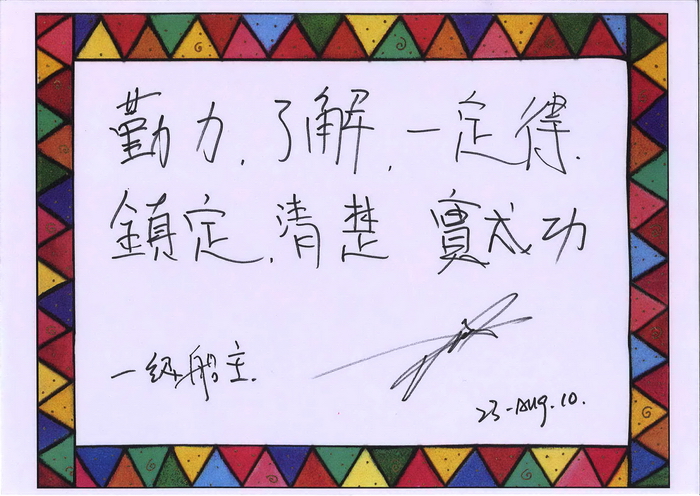 勤力,了解,一定得.
鎮定,清楚 實成功
一級船主.
23-Aug.10.